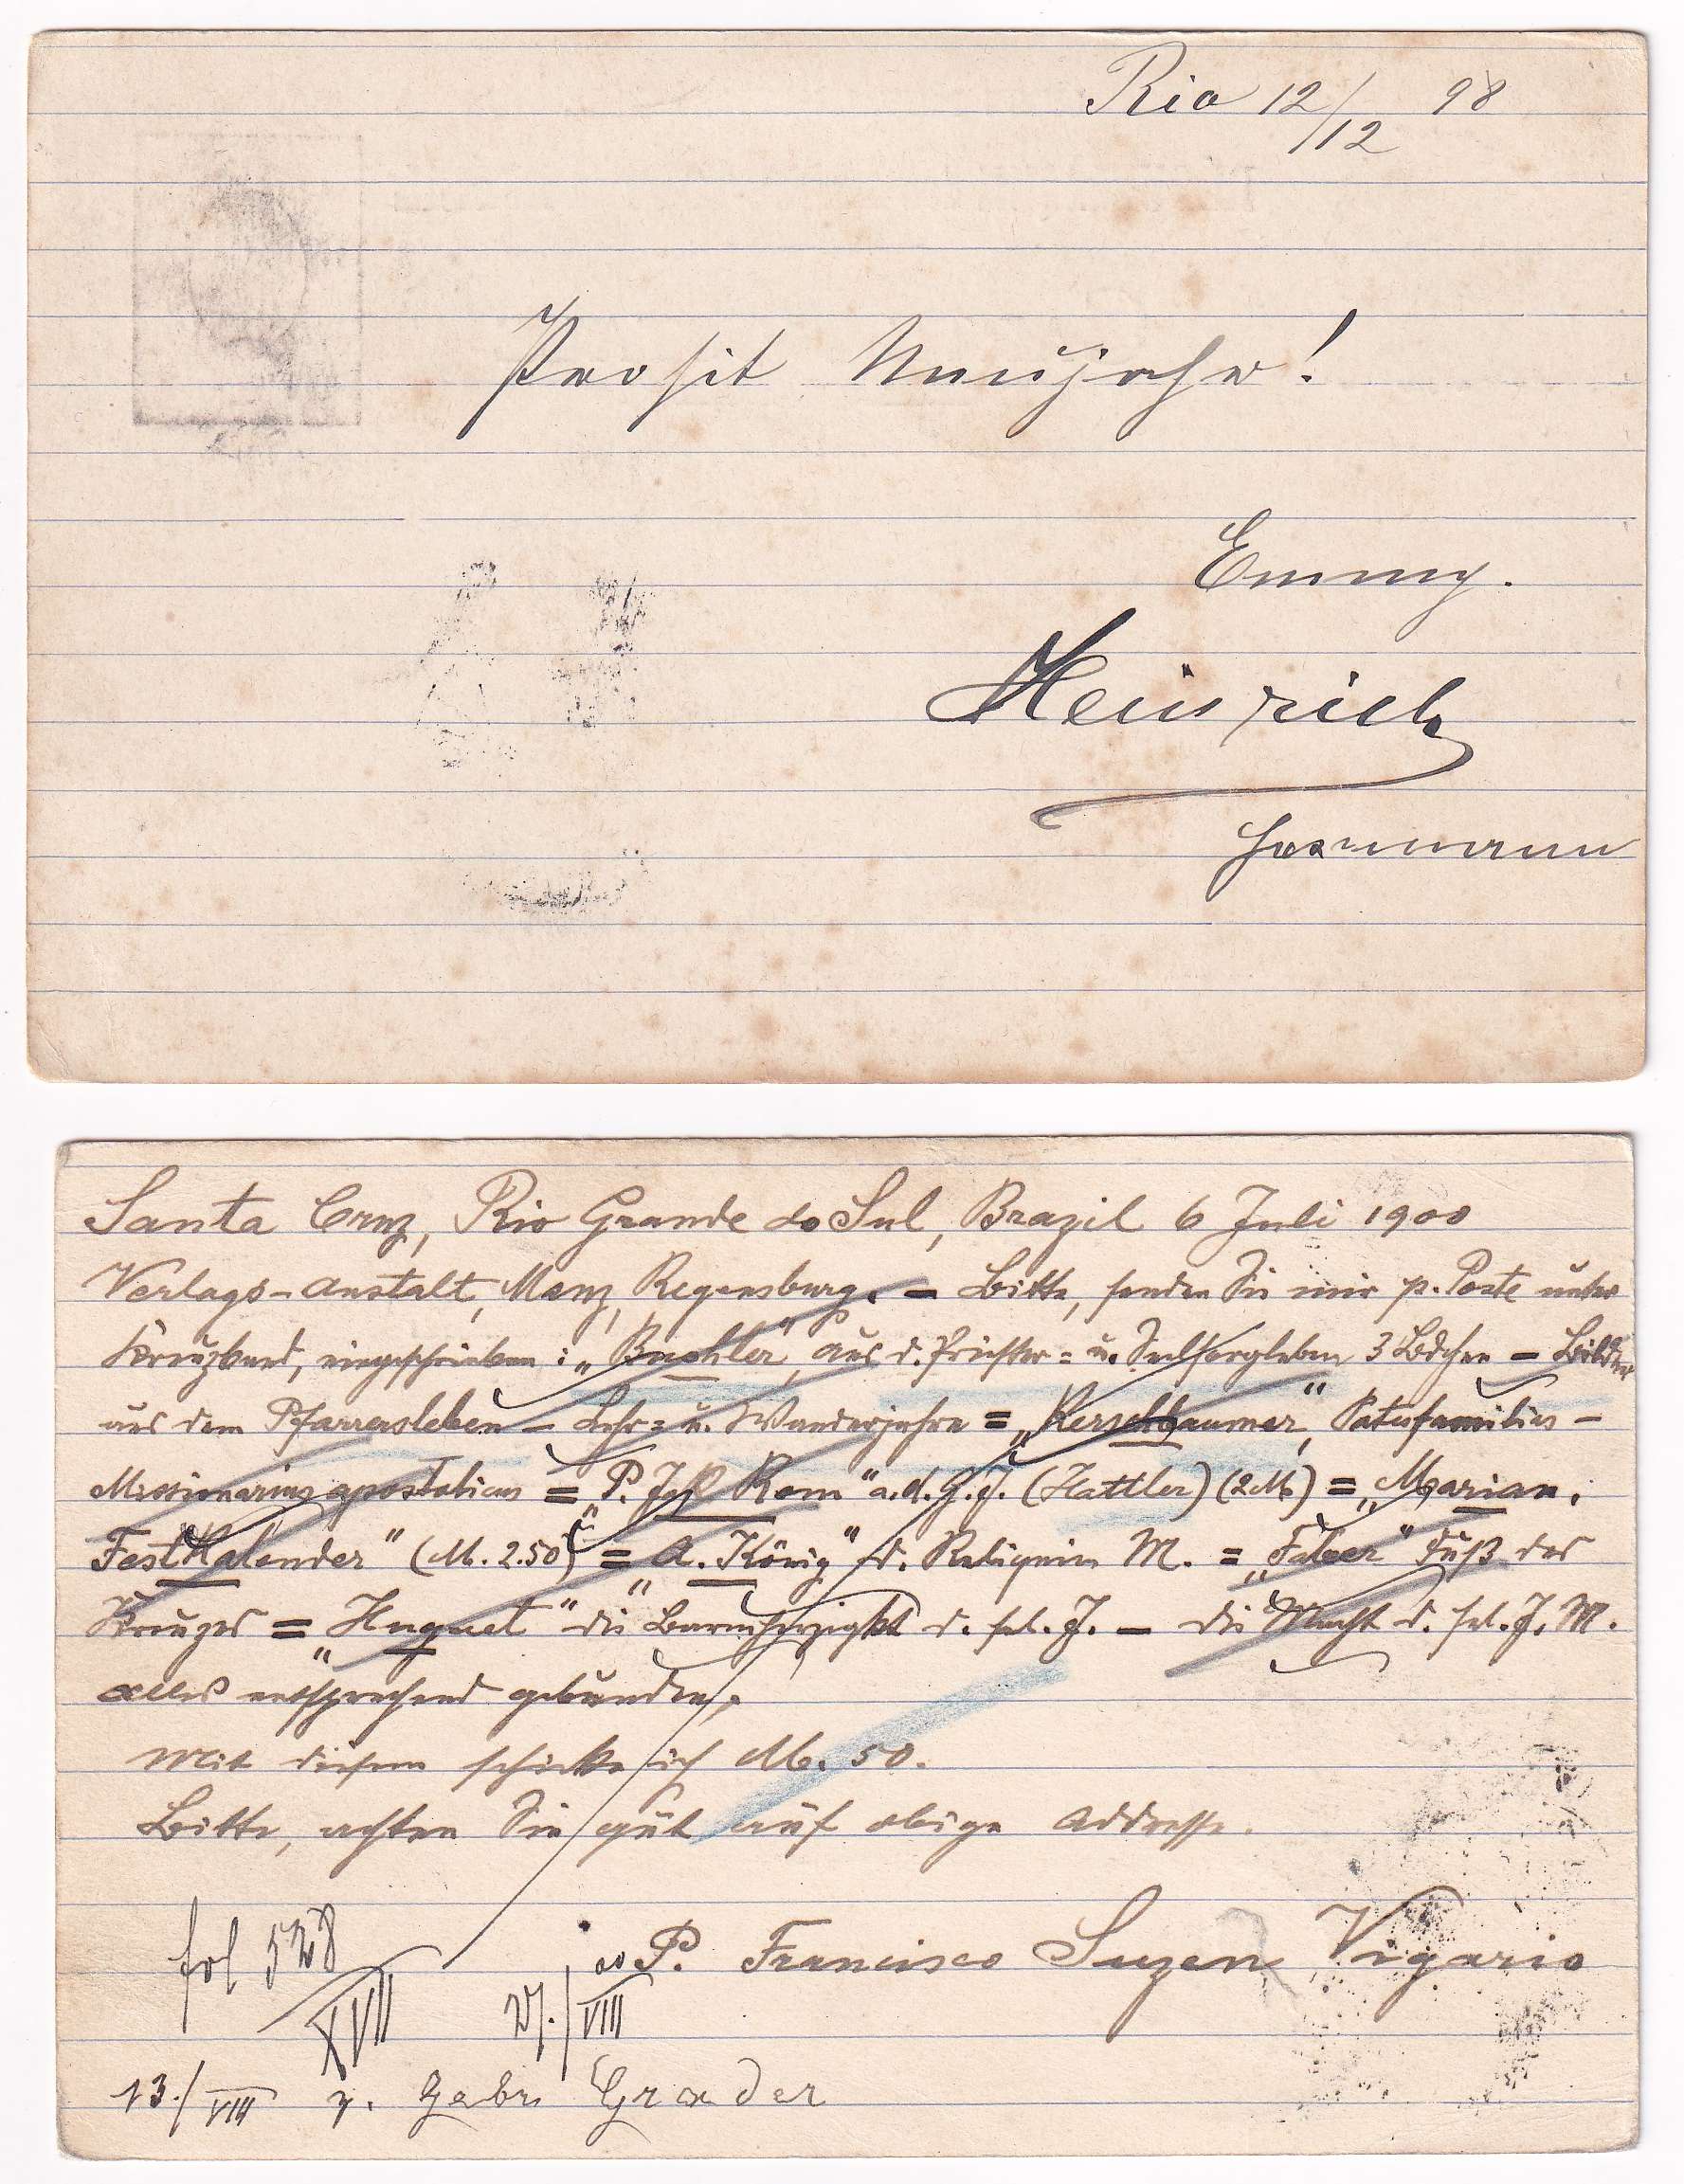 Rio 12/12 98
Prosit Neujahr!
Emmy.
Heinrich
Hermann
Santa Cruz, Rio Grande do Sul, Brazil 6 Juli 1900
Verlags-Anstalt, Manz, Regensburg. – Bitte, senden Sie mir p. Poste unter
Kreuzband, eingeschrieben: „Buohler“, aus d. Priester= u. Seelsorgleben 3 Bdchen – Bilder
aus dem Pfarrersleben – Lehr= u. Wanderjahre = „Kerschbaumer“, Paterfamilias –
Missionarius apostolicus = „P. Jos. Rem“ a. d. G. J. (Hattler) (2 M.) = „Marian.
Festkalender“ (M. 2.50) = „A. König“ d. Reliquien M. = „Faber“ Fuß des
Kreuzes = „Huguet“ die Barmherzigkt d. sel. J. – die Macht d. sel. J. M.
alles entsprechend gebunden.
Mit diesem schicke ich M. 50.
Bitte, achten Sie gut auf obige Addresse.
P. Francisco Suzen Vigario
fol 528
XVII
27./VIII
13./VIII